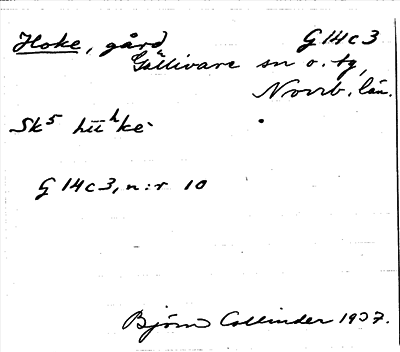 Hoke, gård G14c3
Gällivare sn o. tg,
Norrb. län.
Sk5 hīī h ke
G 14c3, n:r 10
Björn Collinder 1937.